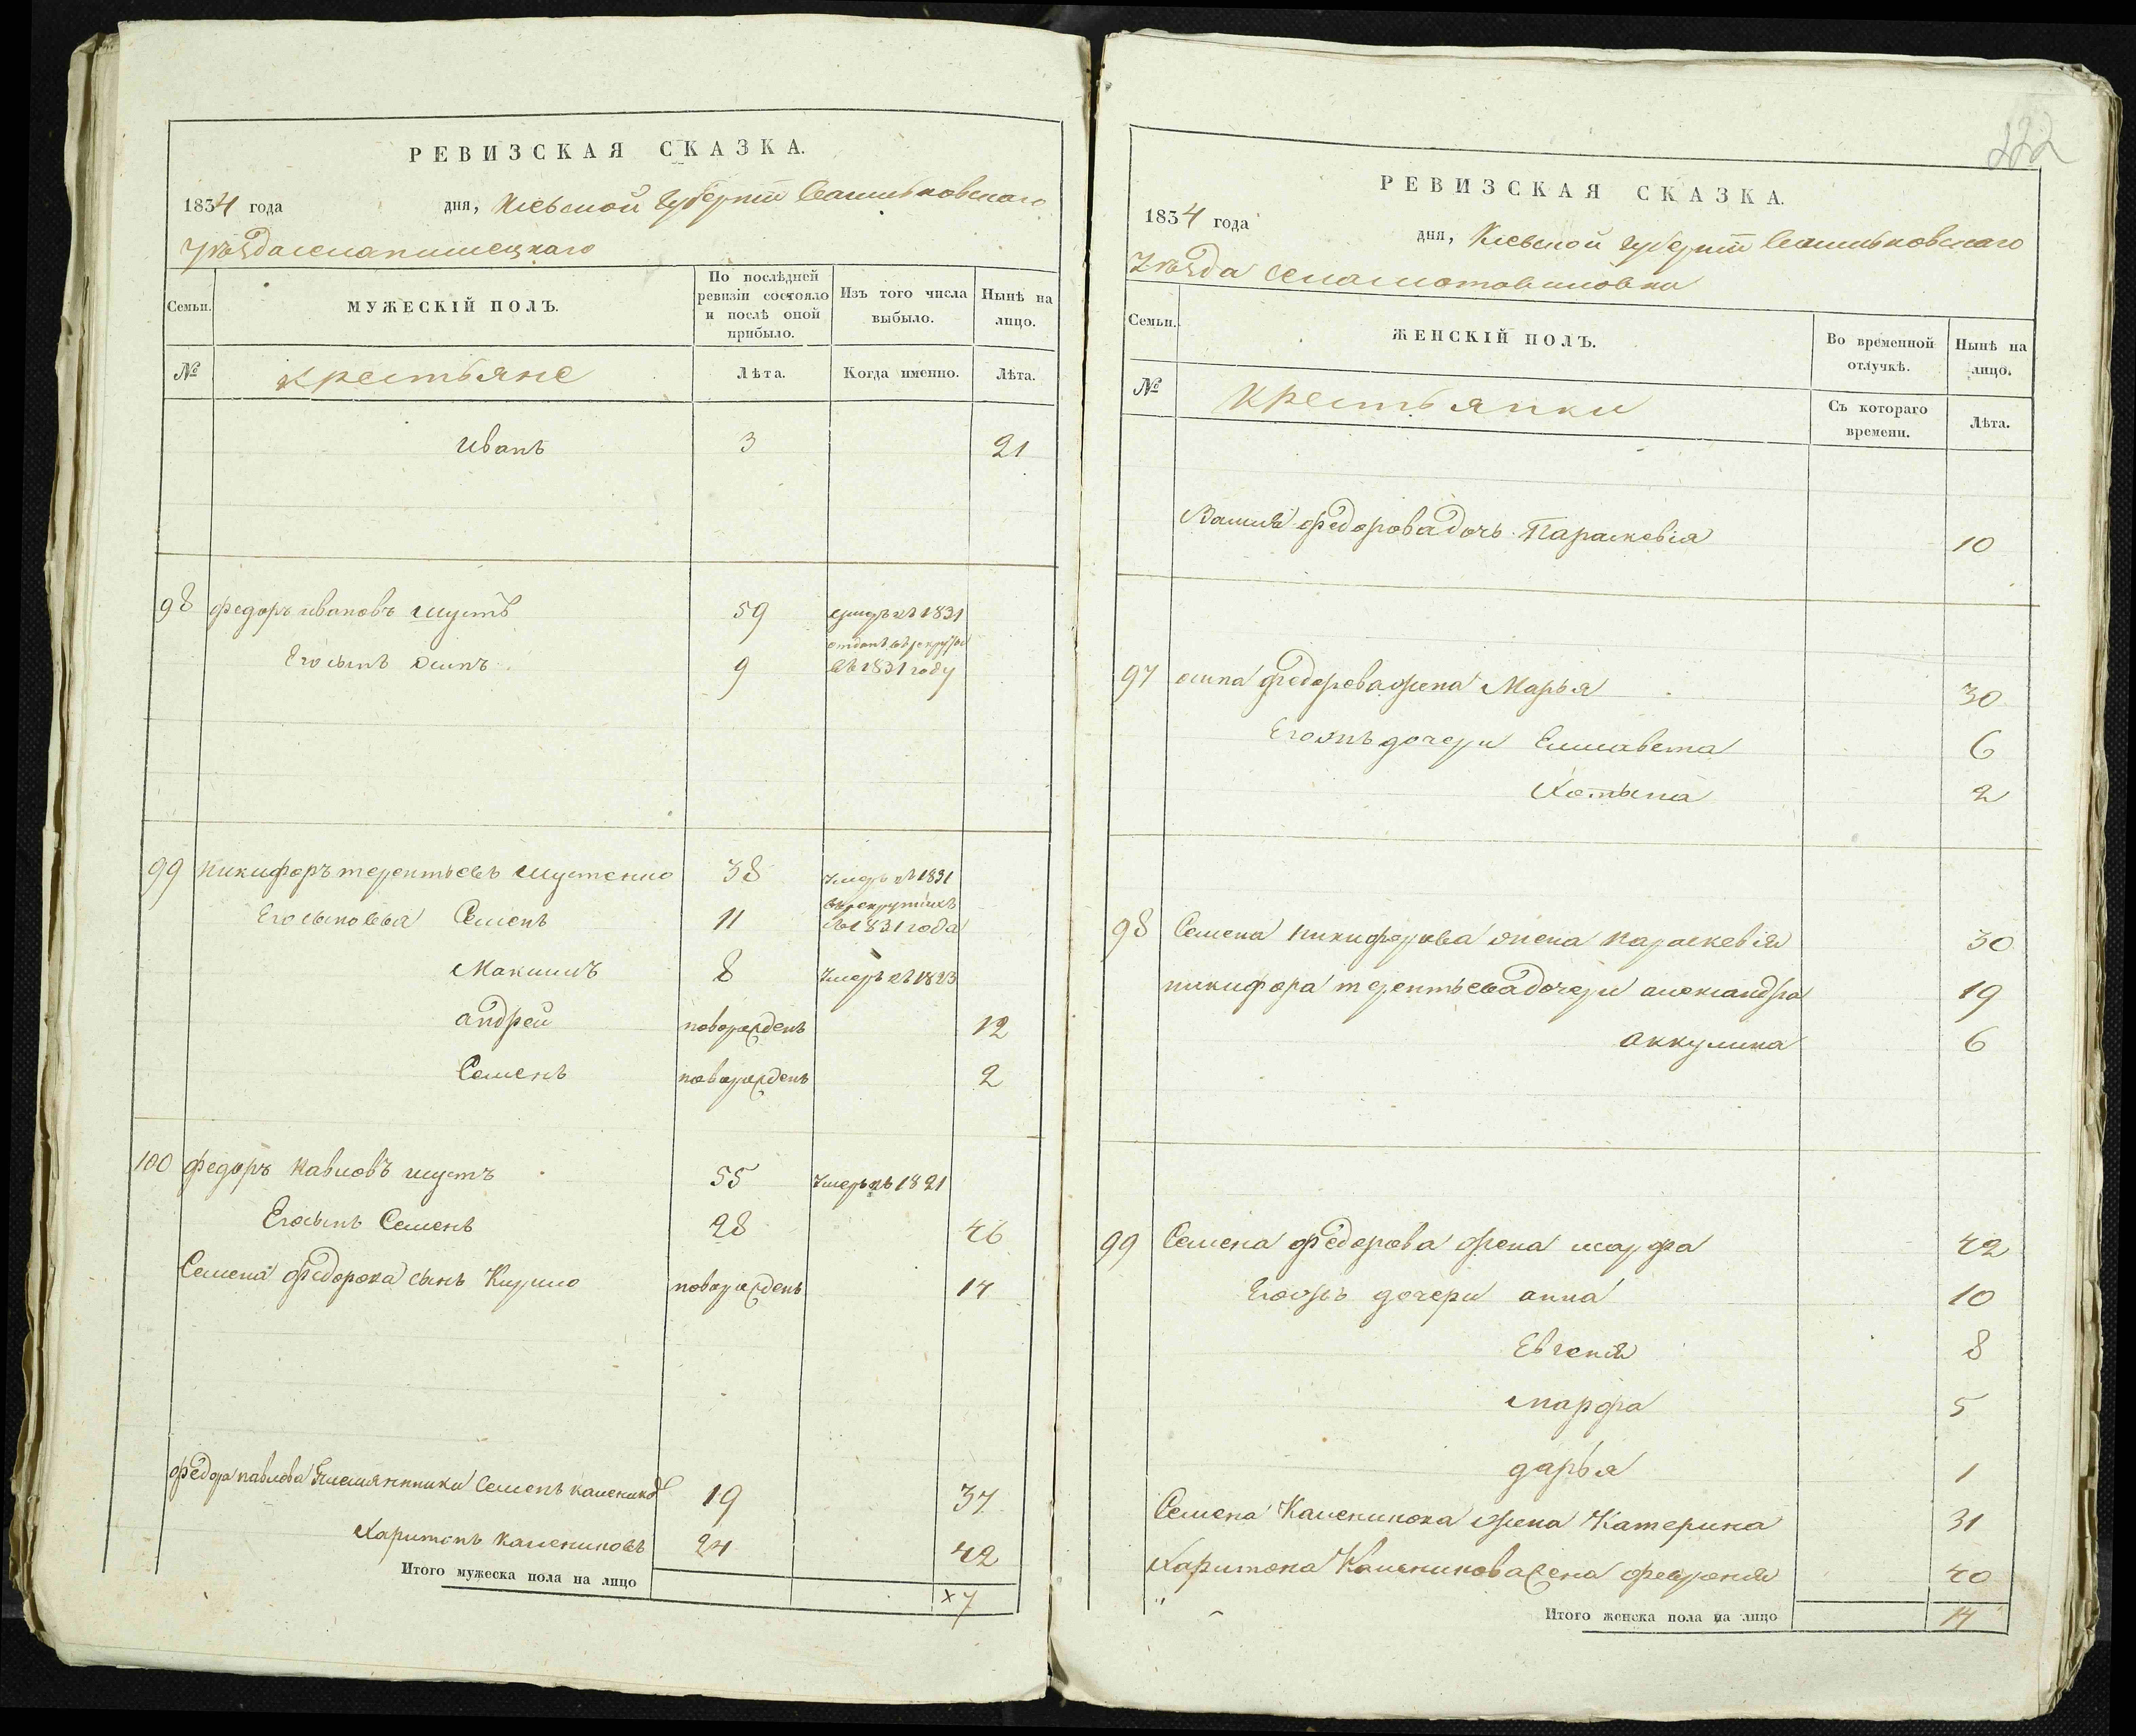 РЕВИЗСКАЯ СКАЗКА.
1834 года дня, Кіевской Губерніи Васильковскаго
Уѣзда села
Семьи.
МУЖЕСКІЙ ПОЛЪ.
По послѣдней ревизіи состояло и послѣ оной прибыло.
Изъ того числа выбыло.
Нынѣ на лицо.
№ крестьяне Лѣта. Когда именно. Лѣта.
Иванъ 3 21
98 федоръ ивановъ шустъ 59 умеръ въ 1831
отданъ въ рекруты
Его сынъ осипъ 9 въ 1831 году
99 никифоръ терентьевъ шустенко 38 умеръ въ 1831
въ рекрутахъ
Его сыновья Семенъ 11 съ 1831 года
Максимъ 8 умеръ въ 1823
андрей новорожденъ 12
Семенъ новорожденъ 2
100 федоръ павловъ шустъ 55 умеръ въ 1821
Его сынъ Семенъ 28 46
Семена федорова сынъ Кирило новорожденъ 14
федора павлова племянники Семенъ 19 37
Харитонъ 24 42
Итого мужеска пола на лицо 7
222
РЕВИЗСКАЯ СКАЗКА.
1834 года дня, Кіевской губерніи Васильковскаго
Уѣзда села
Семьи.
ЖЕНСКІЙ ПОЛЪ.
Во временной отлучкѣ.
Нынѣ на лицо.
№ крестьянки Съ котораго времени. Лѣта.
федорова дочь Параскевія 10
97 осипа федорова жена Марья 30
Его жъ дочери Елисавета 6
Хотына 2
98 Семена никифорова жена параскевія 30
никифора терентьева дочери александра 19
аккулина 6
99 Семена федорова жена марфа 42
Его жъ дочери анна 10
Евгенія 8
марфа 5
дарья 1
Семена жена Катерина 31
Харитона жена февронія 40
Итого женска пола на лицо 14